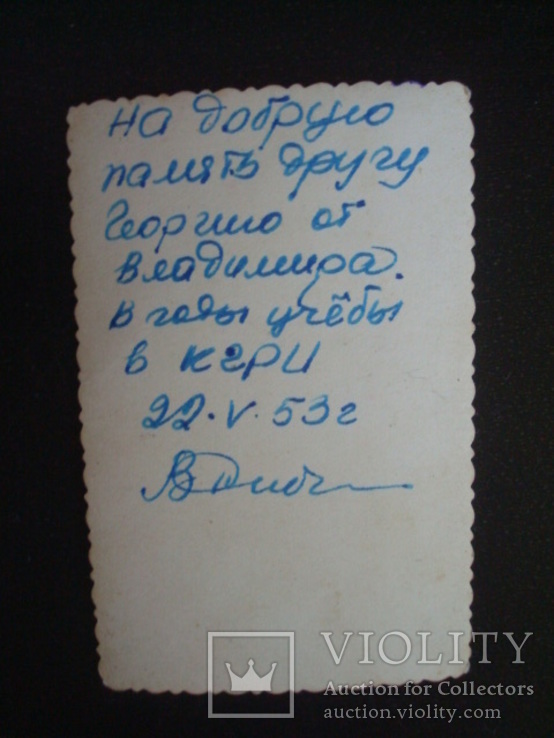 На добрую
память другу
Георгию от
Владимира.
В годы учёбы
в КГРИ
22.V.53г
VIOLITY
Auction for Collectors
auction.violity.com